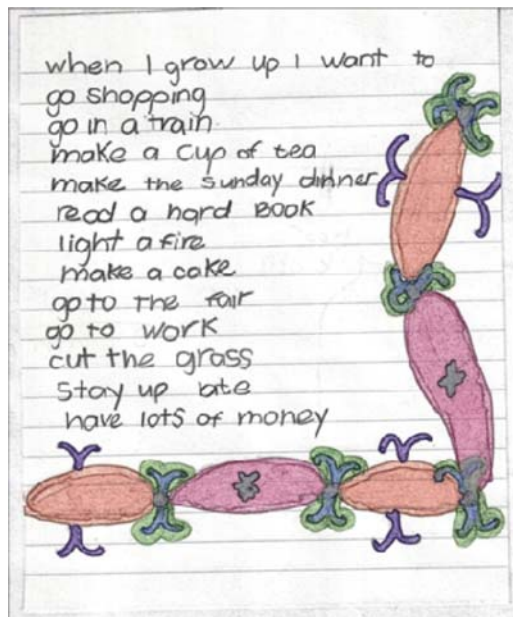 when I grow up I want to
go shopping
go in a train
make a cup of tea
make the Sunday dinner
read a hard BOOK
light a fire
make a cake
go to the fair
go to work
cut the grass
stay up late
have lots of money